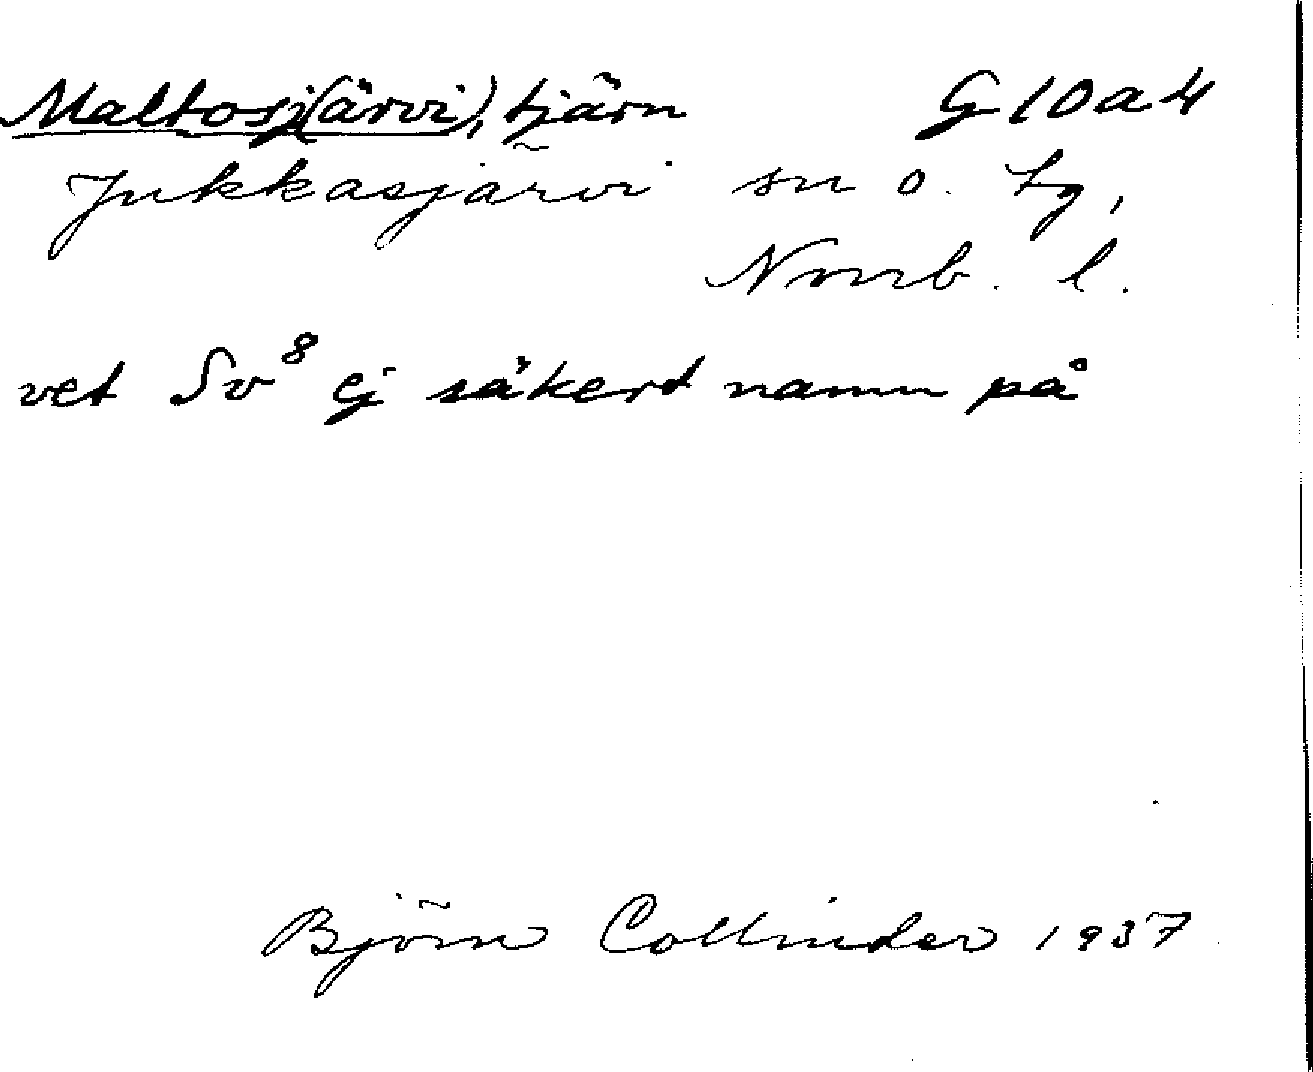 Maltosj(ärvi), tjärn G 10 a 4
Jukkasjärvi sn o. tg,
Norrb. l.
vet Sv⁸ ej säkert namn på
Björn Collinder 1937